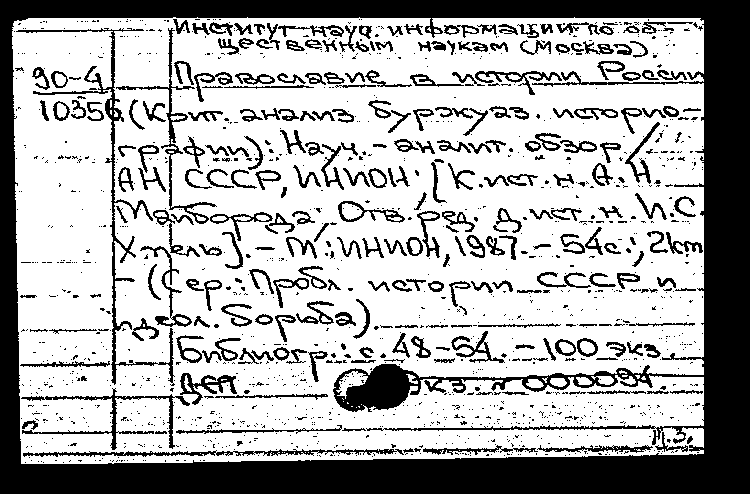 Институт науч. информации по об-
щественным наукам (Москва).
90-4 Православие в истории России
10356 (Крит. анализ буржуаз. историо-
графии): Науч.-аналит. обзор /
АН СССР, ИНИОН; [К.ист.н. А.Н.
Майборода; Отв. ред. д.ист.н. И.С.
Хмель]. - М.: ИНИОН, 1987. - 54с.; 21см
- (Сер.: Пробл. истории СССР и
идеол. борьба).
Библиогр.: с. 48-54. - 100 экз.
Деп. экз. № 000094.
т.з.